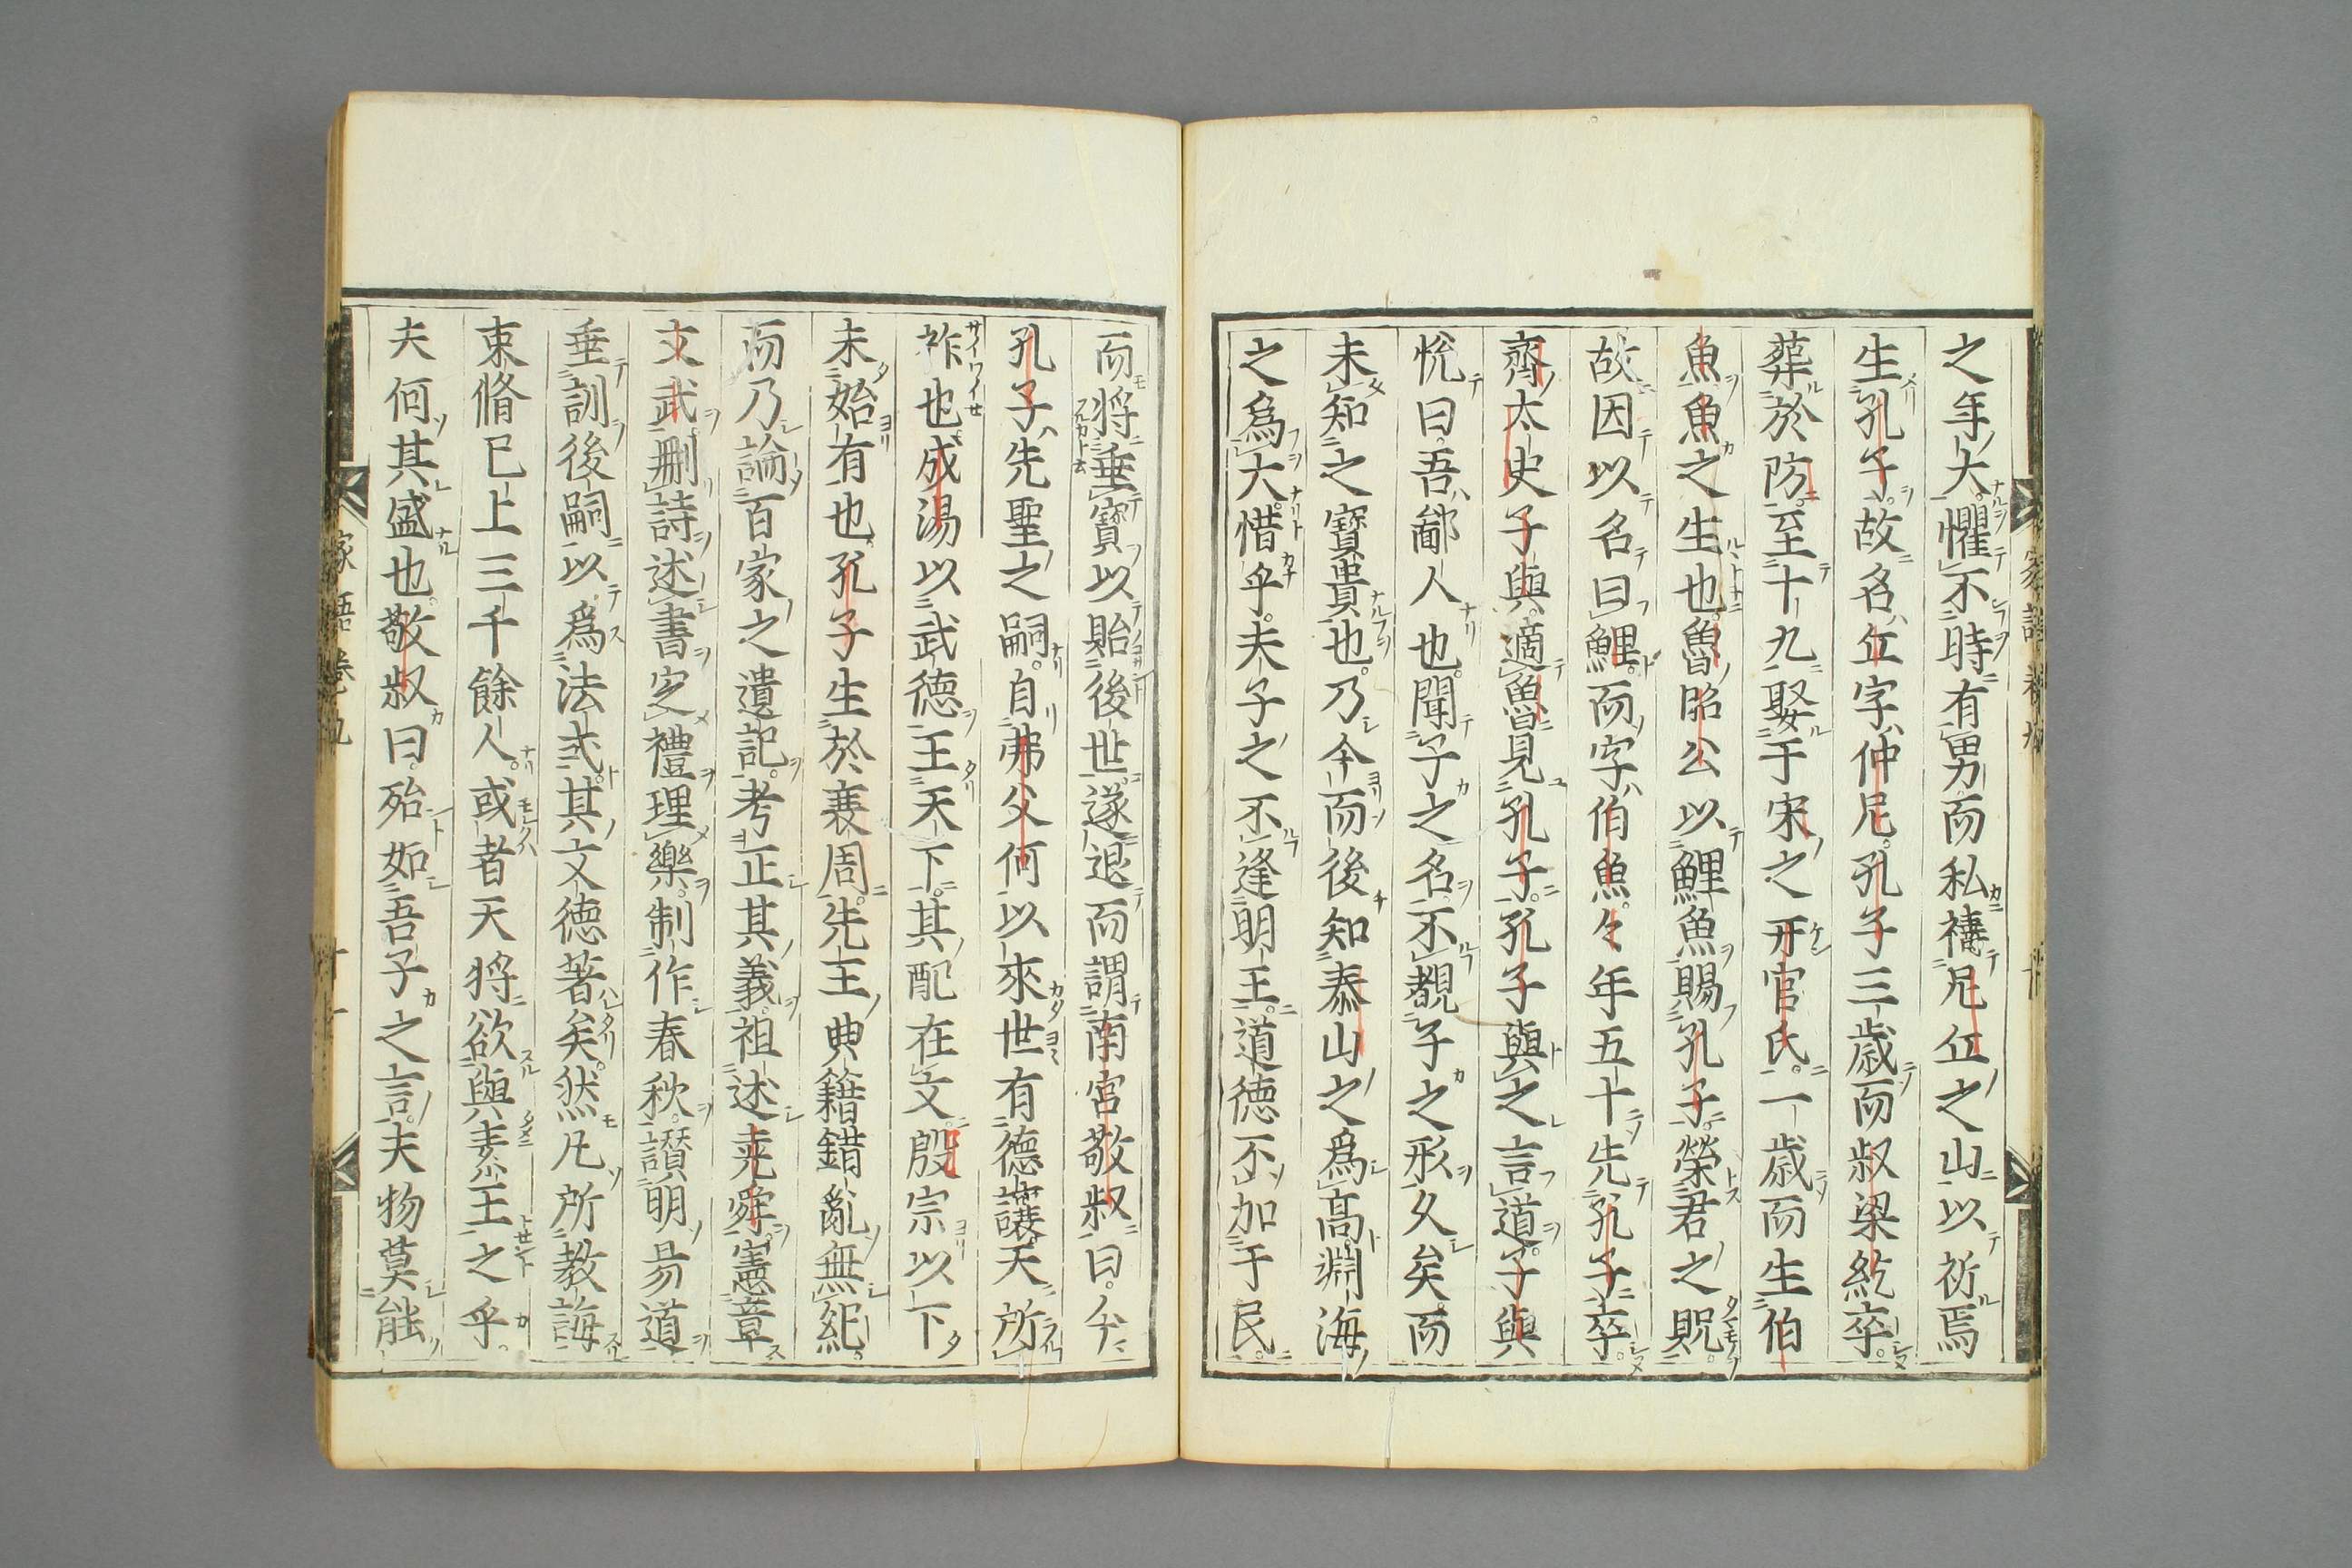 之年大懼不時有男而私禱尼丘之山以祈焉
生孔子故名丘字仲尼孔子三歳而叔梁紇卒
葬於防至十九娶于宋之幵官氏一歳而生伯
魚魚之生也魯昭公以鯉魚賜孔子榮君之貺
故因以名曰鯉而字伯魚々年五十先孔子卒
齊太史子與適魯見孔子孔子與之言道子與
悅曰吾鄙人也聞子之名不覩子之形久矣而
未知之寳貴也乃今而後知泰山之爲髙淵海
之爲大惜乎夫子之不逢明王道徳不加于民
而將垂寳以貽後世遂退而謂南宮敬叔曰今
孔子先聖之嗣自弗父何以來世有德讓天所
祚也成湯以武德王天下其配在文殷宗以下
未始有也孔子生於衰周先王典籍錯亂無紀
而乃論百家之遺記考正其義祖述尭舜憲章
文武刪詩述書定禮理樂制作春秋讃明昜道
垂訓後嗣以爲法式其文德著矣然凡所教誨
束脩已上三千餘人或者天將欲與素王之乎
夫何其盛也敬叔曰殆如吾子之言夫物莫能
家語卷九